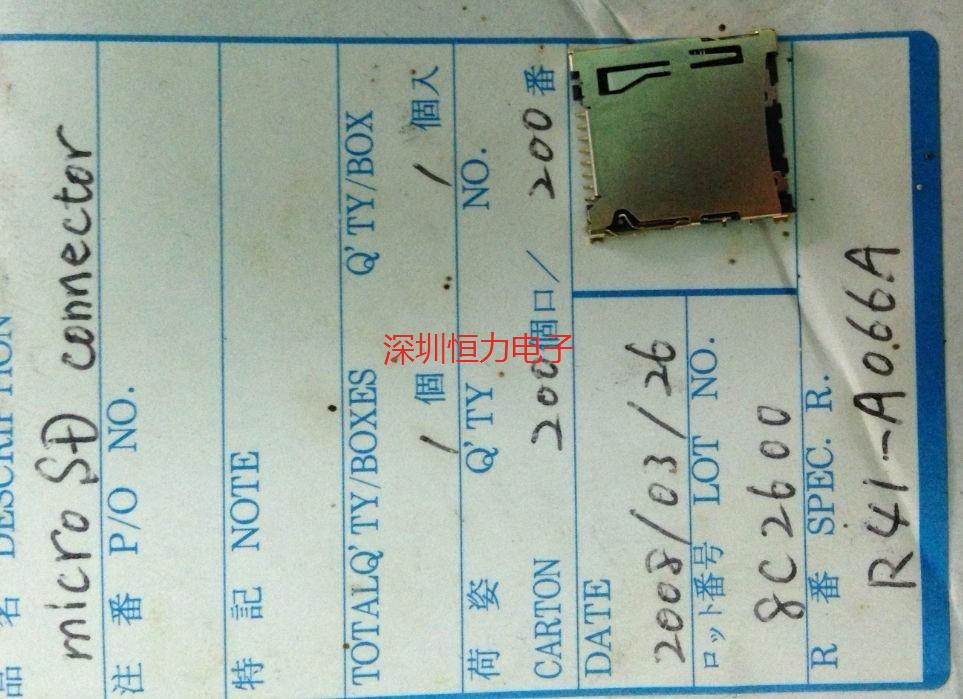 品 名 DESCRIPTION
micro SD connector
注 番 P/O NO.
特 記 NOTE
TOTALQ'TY/BOXES Q'TY/BOX
1 個 1 個入
荷 姿 Q'TY NO.
CARTON 200 個口/ 200 番
DATE
2008/03/26
ロット番号 LOT NO.
8C2600
R 番 SPEC. R.
R41-A066A
深圳恒力电子